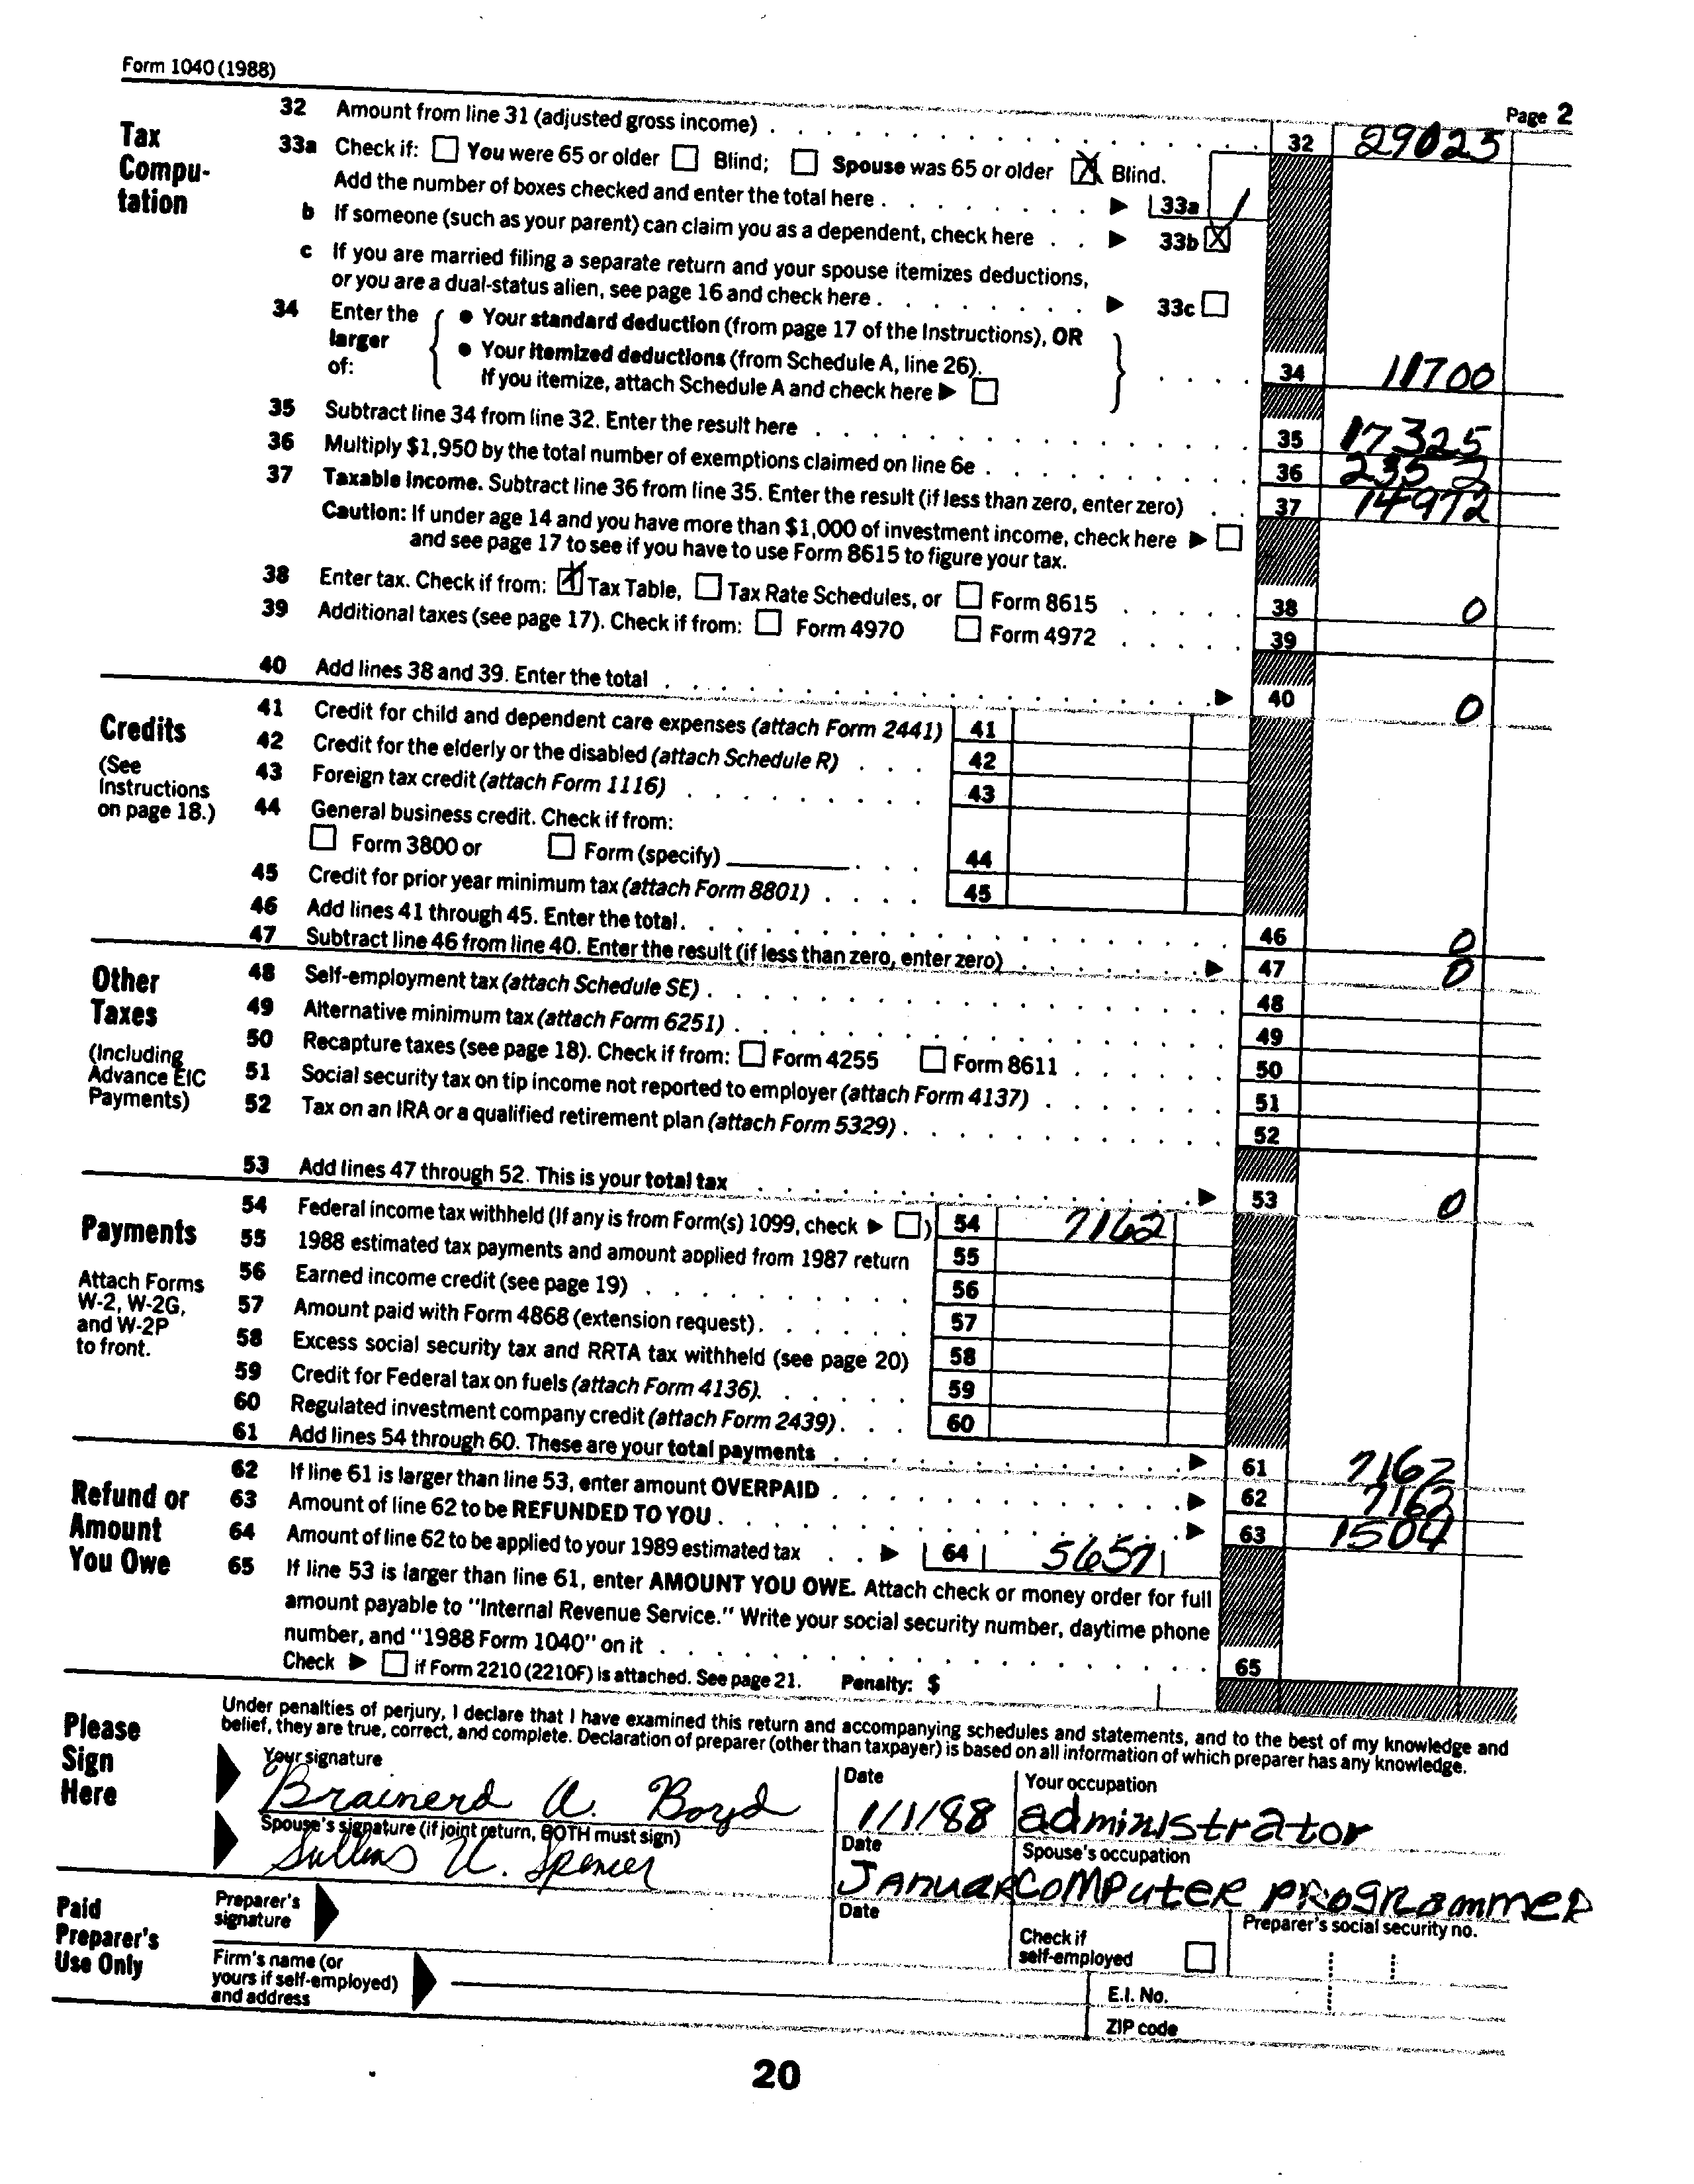 Form 1040 (1988)
Page 2
Tax Compu-tation
32 Amount from line 31 (adjusted gross income) 32 29025
33a Check if: You were 65 or older Blind; Spouse was 65 or older X Blind.
Add the number of boxes checked and enter the total here 33a 1
b If someone (such as your parent) can claim you as a dependent, check here 33b X
c If you are married filing a separate return and your spouse itemizes deductions,
or you are a dual-status alien, see page 16 and check here 33c
34 Enter the larger of:
• Your standard deduction (from page 17 of the Instructions), OR
• Your itemized deductions (from Schedule A, line 26).
If you itemize, attach Schedule A and check here 34 11700
35 Subtract line 34 from line 32. Enter the result here 35 17325
36 Multiply $1,950 by the total number of exemptions claimed on line 6e 36 2352
37 Taxable income. Subtract line 36 from line 35. Enter the result (if less than zero, enter zero) 37 14972
Caution: If under age 14 and you have more than $1,000 of investment income, check here
and see page 17 to see if you have to use Form 8615 to figure your tax.
38 Enter tax. Check if from: X Tax Table, Tax Rate Schedules, or Form 8615 38 0
39 Additional taxes (see page 17). Check if from: Form 4970 Form 4972 39
40 Add lines 38 and 39. Enter the total 40 0
Credits
(See Instructions on page 18.)
41 Credit for child and dependent care expenses (attach Form 2441) 41
42 Credit for the elderly or the disabled (attach Schedule R) 42
43 Foreign tax credit (attach Form 1116) 43
44 General business credit. Check if from:
Form 3800 or Form (specify) 44
45 Credit for prior year minimum tax (attach Form 8801) 45
46 Add lines 41 through 45. Enter the total. 46 0
47 Subtract line 46 from line 40. Enter the result (if less than zero, enter zero) 47 0
Other Taxes
(Including Advance EIC Payments)
48 Self-employment tax (attach Schedule SE) 48
49 Alternative minimum tax (attach Form 6251) 49
50 Recapture taxes (see page 18). Check if from: Form 4255 Form 8611 50
51 Social security tax on tip income not reported to employer (attach Form 4137) 51
52 Tax on an IRA or a qualified retirement plan (attach Form 5329) 52
53 Add lines 47 through 52. This is your total tax 53 0
Payments
Attach Forms W-2, W-2G, and W-2P to front.
54 Federal income tax withheld (If any is from Form(s) 1099, check ) 54 7162
55 1988 estimated tax payments and amount applied from 1987 return 55
56 Earned income credit (see page 19) 56
57 Amount paid with Form 4868 (extension request) 57
58 Excess social security tax and RRTA tax withheld (see page 20) 58
59 Credit for Federal tax on fuels (attach Form 4136). 59
60 Regulated investment company credit (attach Form 2439) 60
61 Add lines 54 through 60. These are your total payments 61 7162
Refund or Amount You Owe
62 If line 61 is larger than line 53, enter amount OVERPAID 62 7162
63 Amount of line 62 to be REFUNDED TO YOU 63 1504
64 Amount of line 62 to be applied to your 1989 estimated tax 64 5657
65 If line 53 is larger than line 61, enter AMOUNT YOU OWE. Attach check or money order for full
amount payable to "Internal Revenue Service." Write your social security number, daytime phone
number, and "1988 Form 1040" on it 65
Check if Form 2210 (2210F) is attached. See page 21. Penalty: $
Please Sign Here
Under penalties of perjury, I declare that I have examined this return and accompanying schedules and statements, and to the best of my knowledge and
belief, they are true, correct, and complete. Declaration of preparer (other than taxpayer) is based on all information of which preparer has any knowledge.
Your signature Date Your occupation
Brainerd A. Boyd 1/1/88 administrator
Spouse's signature (if joint return, BOTH must sign) Date Spouse's occupation
Sullins U. Spencer JANUAR COMPUTER PROGRAMMER
Paid Preparer's Use Only
Preparer's signature Date Check if self-employed Preparer's social security no.
Firm's name (or yours if self-employed) and address
E.I. No.
ZIP code
20